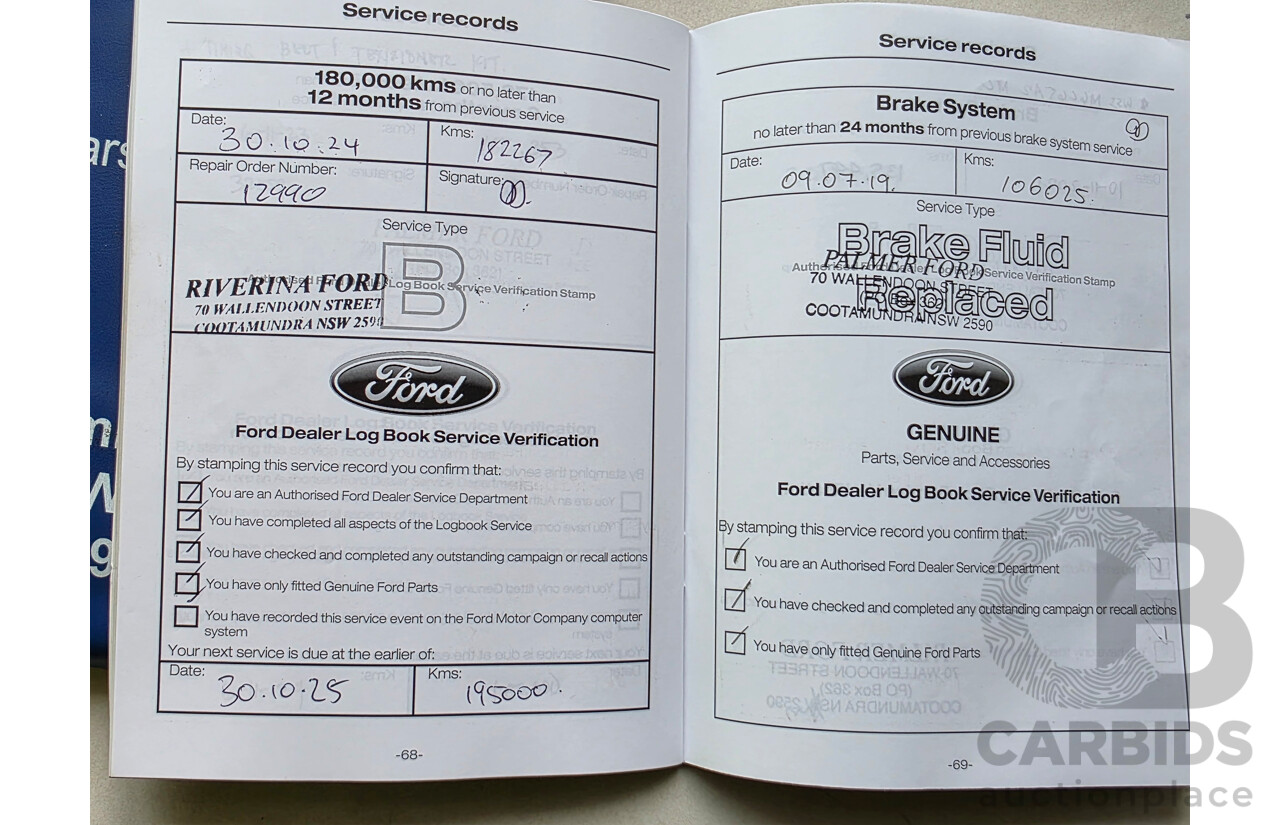 Service records
180,000 kms or no later than
12 months from previous service
Date:
30.10.24
Kms:
182267
Repair Order Number:
12990
Signature:
Service Type
B
Authorised Ford Dealer Log Book Service Verification Stamp
RIVERINA FORD
70 WALLENDOON STREET
COOTAMUNDRA NSW 2590
Ford
Ford Dealer Log Book Service Verification
By stamping this service record you confirm that:
You are an Authorised Ford Dealer Service Department
You have completed all aspects of the Logbook Service
You have checked and completed any outstanding campaign or recall actions
You have only fitted Genuine Ford Parts
You have recorded this service event on the Ford Motor Company computer
system
Your next service is due at the earlier of:
Date:
30.10.25
Kms:
195000.
-68-
Service records
Brake System
no later than 24 months from previous brake system service
Date:
09.07.19.
Kms:
106025.
Service Type
Brake Fluid
Replaced
Authorised Ford Dealer Log Book Service Verification Stamp
PALMER FORD
70 WALLENDOON STREET
(PO Box 362)
COOTAMUNDRA NSW 2590
Ford
GENUINE
Parts, Service and Accessories
Ford Dealer Log Book Service Verification
By stamping this service record you confirm that:
You are an Authorised Ford Dealer Service Department
You have checked and completed any outstanding campaign or recall actions
You have only fitted Genuine Ford Parts
-69-
CB
CARBIDS
auctionplace